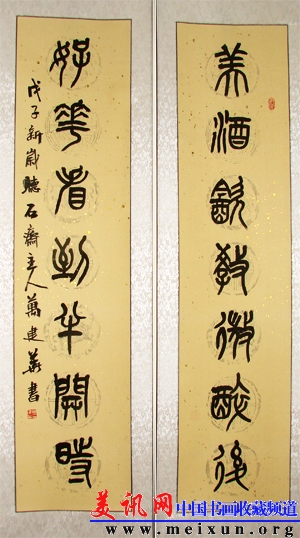 美酒飲教微醉後
好華看到半開時
戊子新歲聽石齋主人萬建華書
美讯网 中国书画收藏频道
www.meixun.org